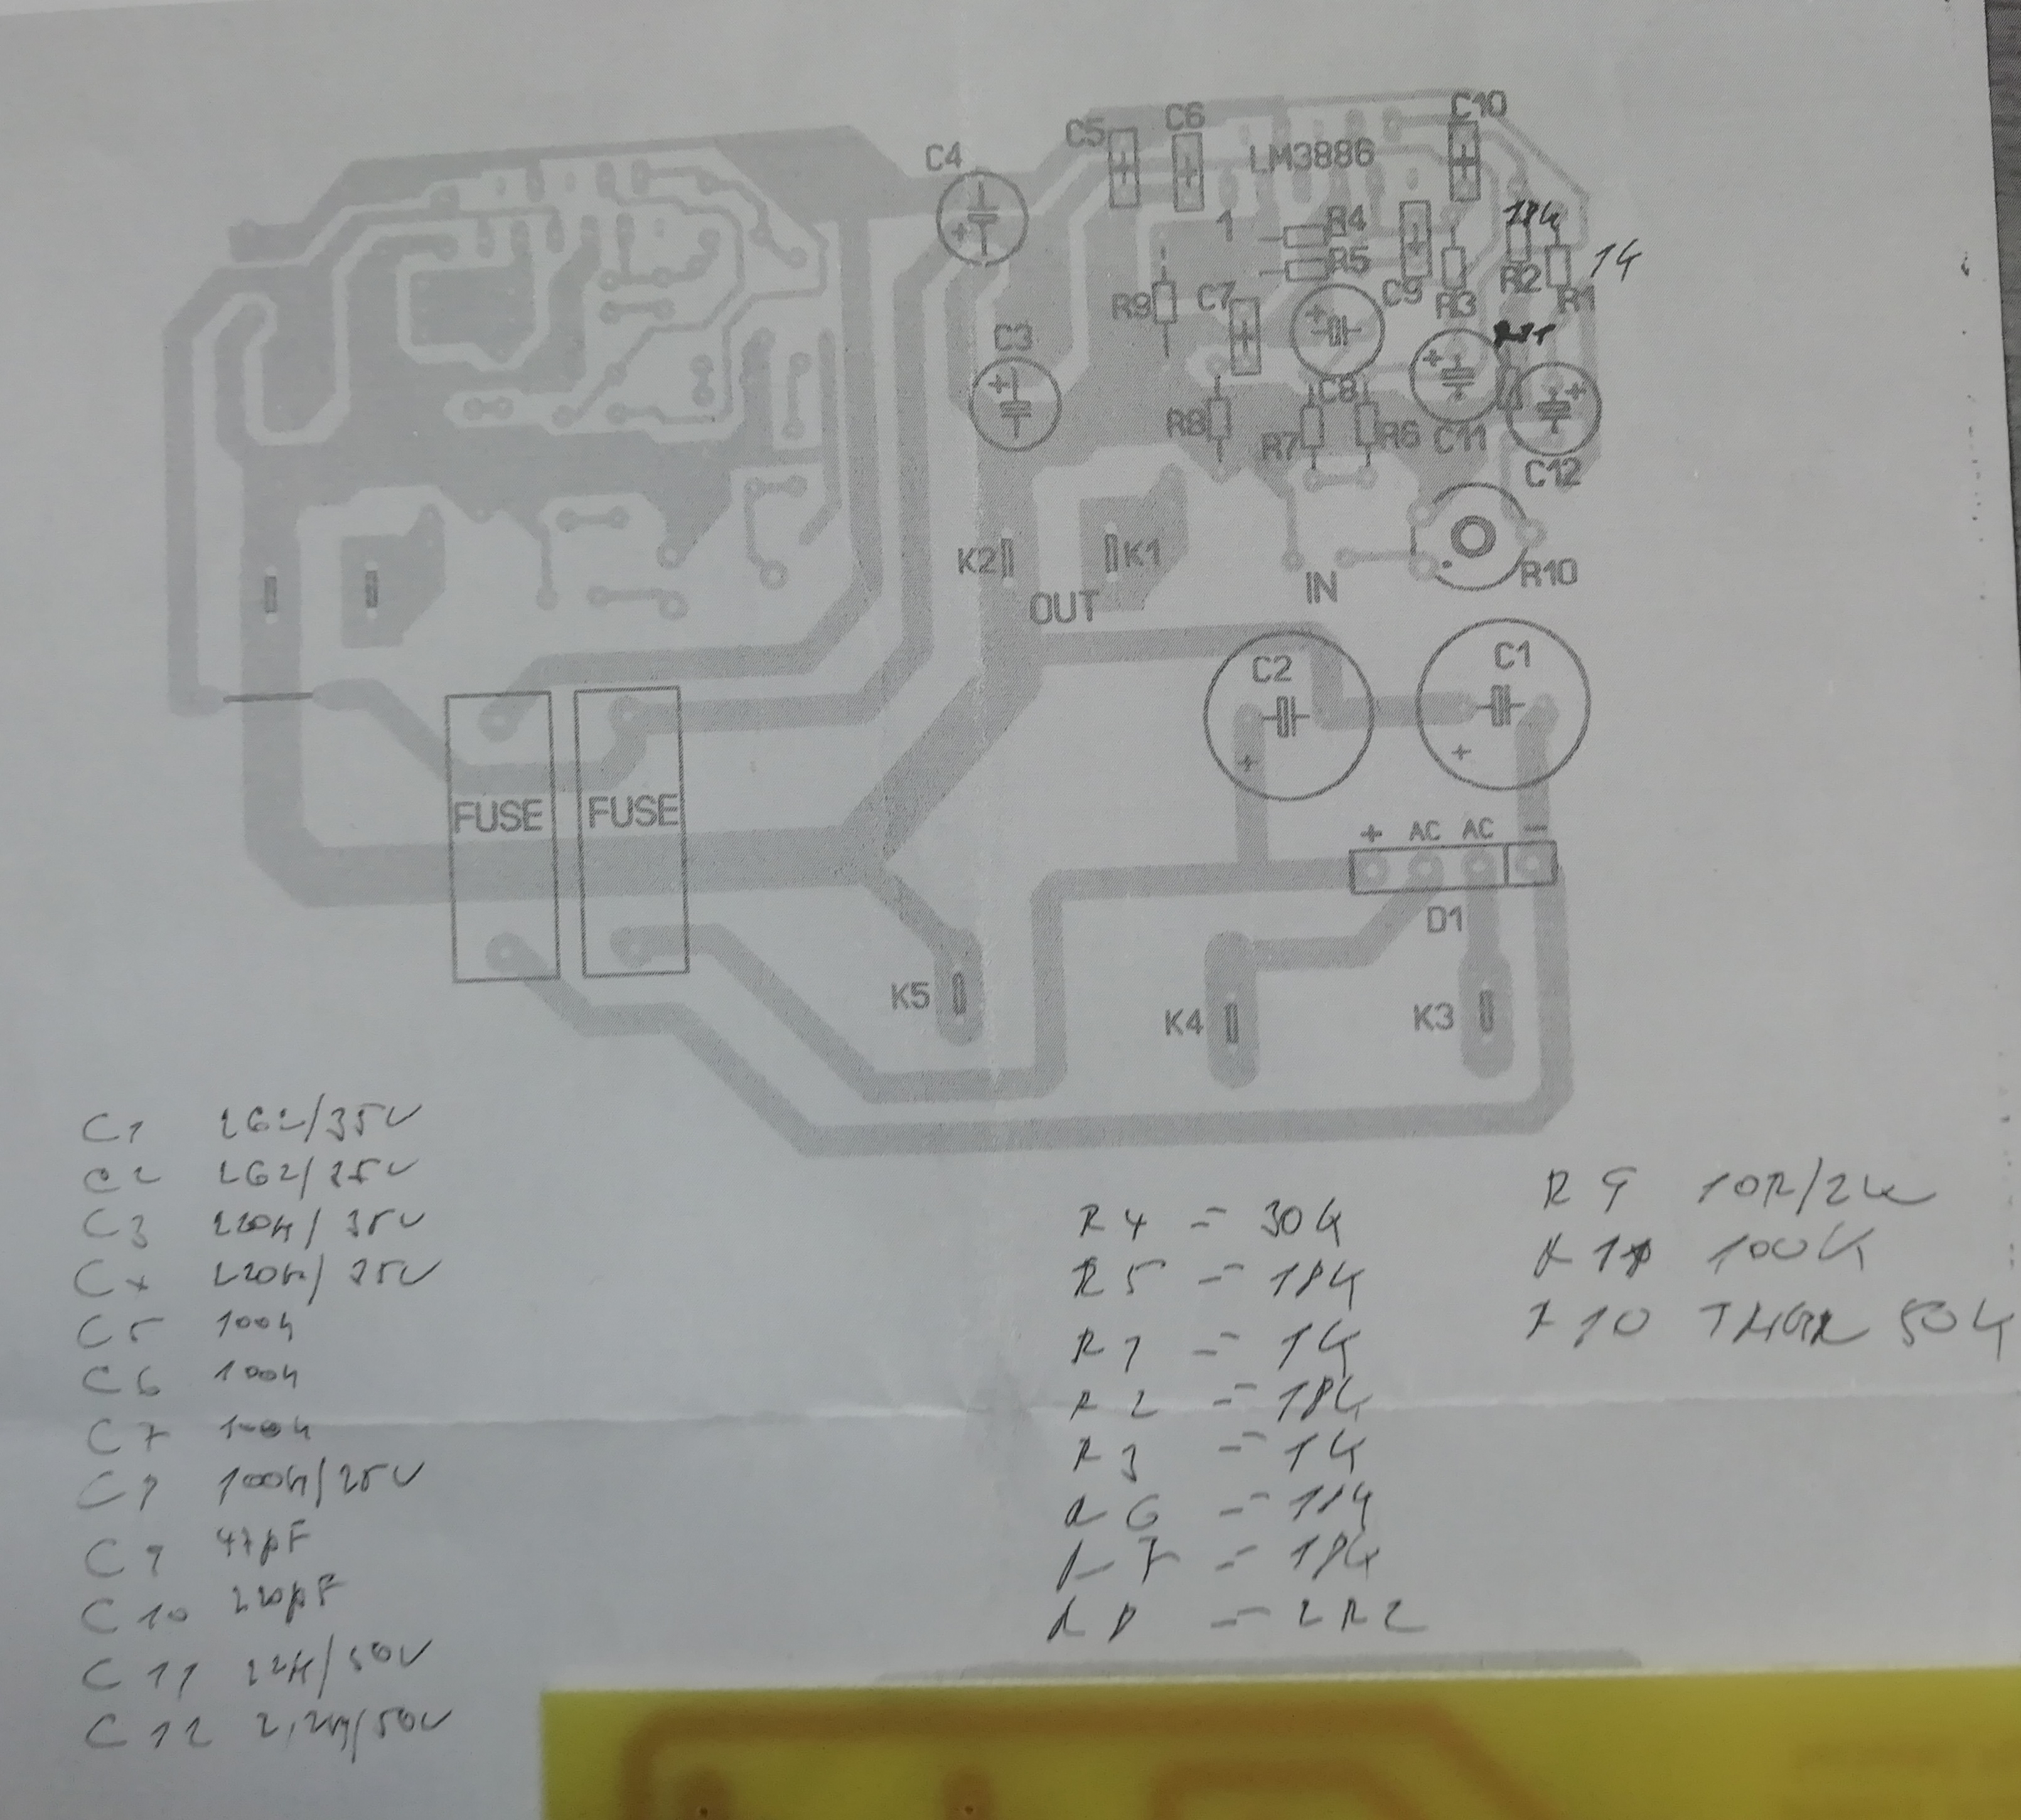 C10
C6
C5
C4
LM3886
18k
1
R4
R5
R2
1k
R9
C7
C9
R3
R1
C3
C8
R8
R7
R6
C11
C12
K2
K1
R10
IN
OUT
C2
C1
+
+
FUSE
FUSE
+ AC AC -
D1
K5
K4
K3
C1 2G2/35V
C2 2G2/35V
C3 220M/35V
C4 220M/35V
C5 100n
C6 100n
C7 100n
C8 100M/25V
C9 47pF
C10 220pF
C11 22M/50V
C12 2,2M/50V
R4 = 30k
R5 = 18k
R1 = 1k
R2 = 18k
R3 = 1k
R6 = 18k
R7 = 18k
R8 = 2R2
R9 10R/2W
100K
R10 50k